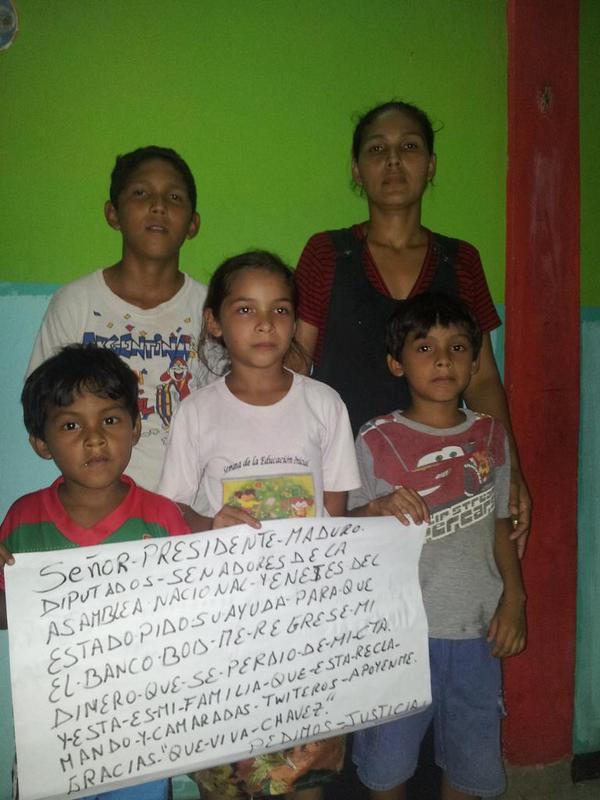 ARGENTINA
Semana de la Educación Inicial
SEÑOR-PRESIDENTE-MADURO.
DIPUTADOS-SENADORES DE LA
ASAMBLEA.NACIONAL-YENESTES DEL
ESTADO.PIDO.SU AYUDA-PARA-QUE
EL-BANCO-BOD-ME-REGRESE-MI
DINERO-QUE-SE-PERDIO-DE-MI-CTA.
Y-ESTA-ES-MI-FAMILIA-QUE-ESTA-RECLA-
MANDO-Y-CAMARADAS-TWITEROS-APOYENME.
GRACIAS-"QUE-VIVA-CHAVEZ."
PEDIMOS-JUSTICIA